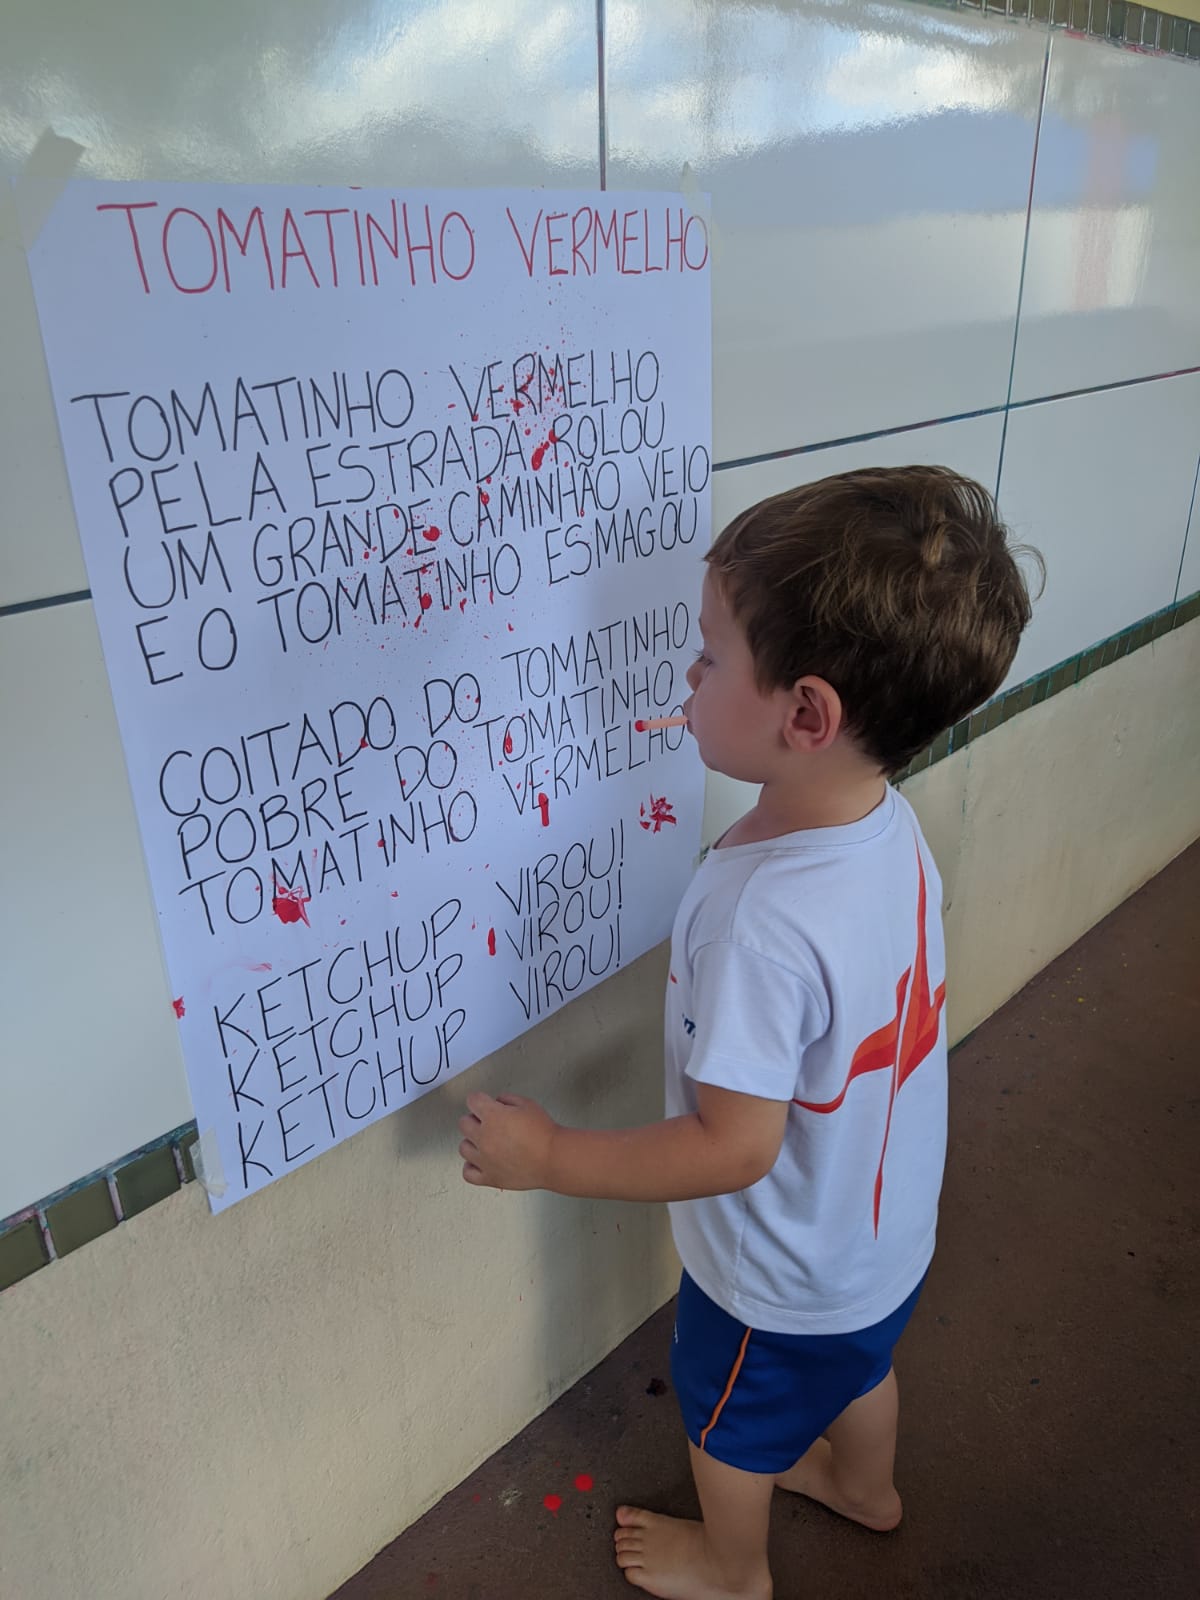 TOMATINHO VERMELHO
TOMATINHO VERMELHO
PELA ESTRADA ROLOU
UM GRANDE CAMINHÃO VEIO
E O TOMATINHO ESMAGOU
COITADO DO TOMATINHO
POBRE DO TOMATINHO
TOMATINHO VERMELHO
KETCHUP VIROU!
KETCHUP VIROU!
KETCHUP VIROU!